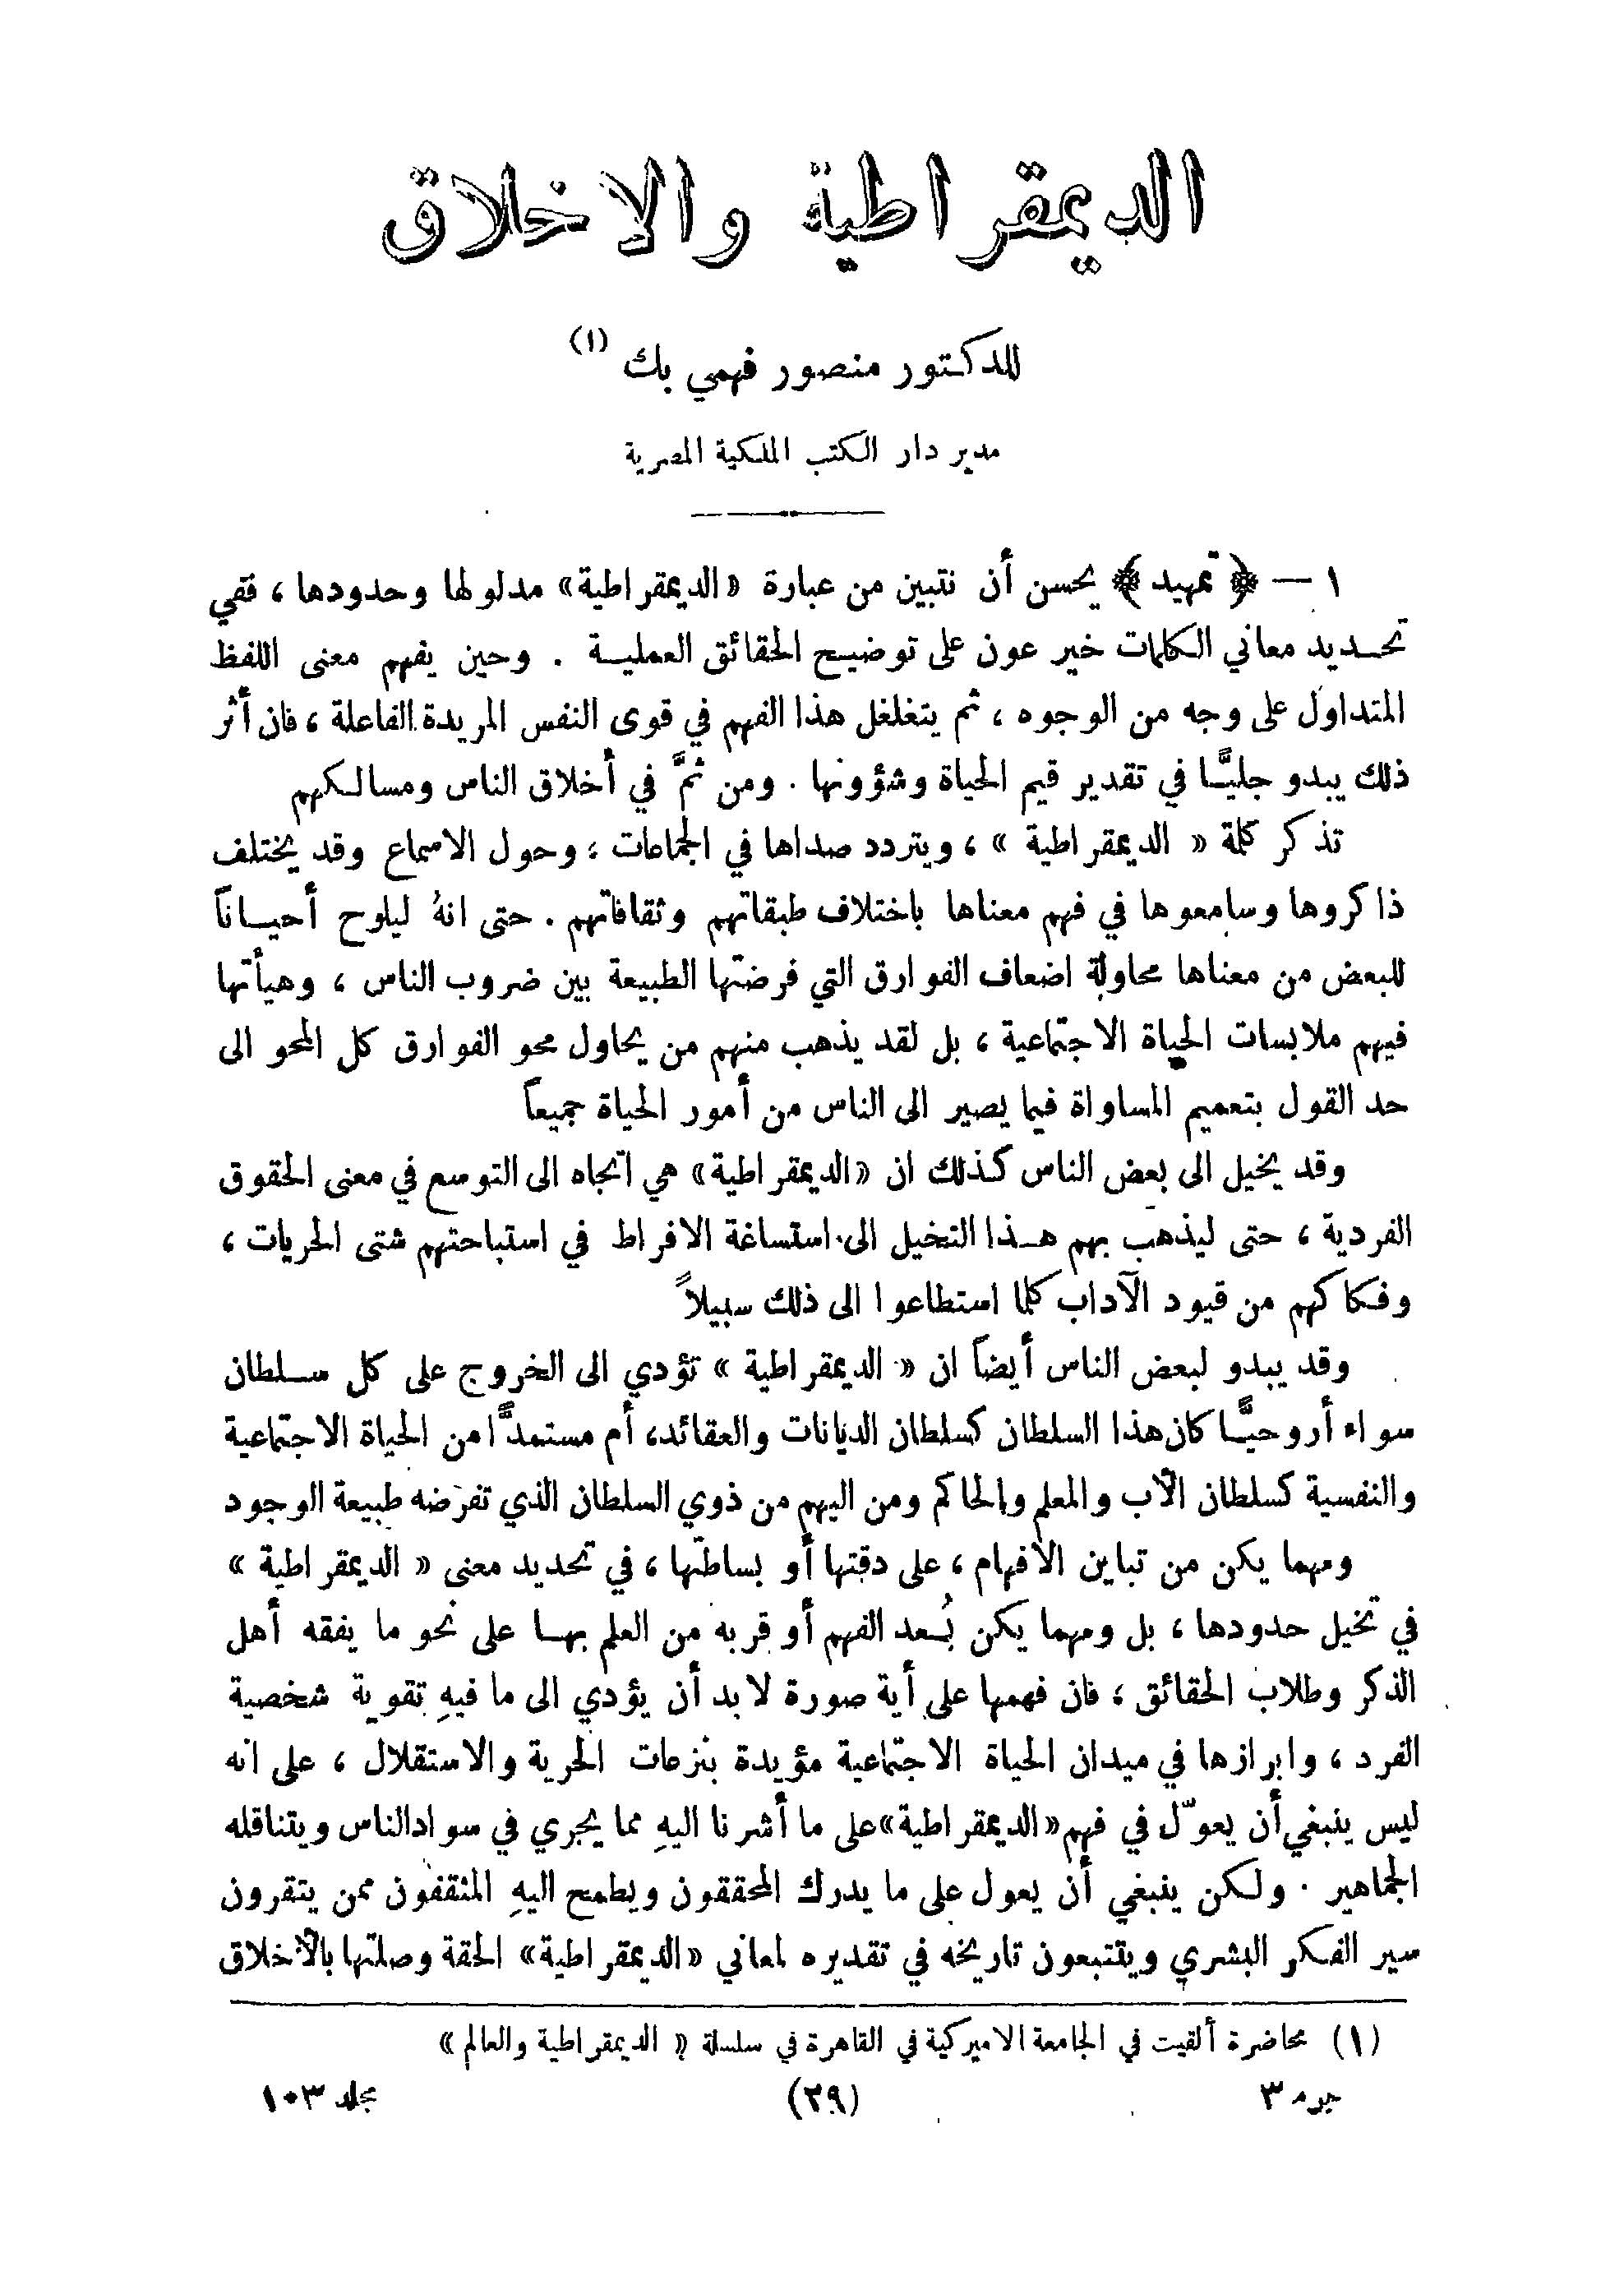 الديمقراطية والاخلاق
للدكتور منصور فهمي بك (١)
مدير دار الكتب الملكية المصرية
١ — ﴿ تمهيد ﴾ يحسن أن نتبين من عبارة «الديمقراطية» مدلولها وحدودها ، ففي
تحديد معاني الكلمات خير عون على توضيح الحقائق العملية . وحين يفهم معنى اللفظ
المتداول على وجه من الوجوه ، ثم يتغلغل هذا الفهم في قوى النفس المريدة الفاعلة ، فان أثر
ذلك يبدو جليًّا في تقدير قيم الحياة وشؤونها . ومن ثمَّ في أخلاق الناس ومسالكهم
تذكر كلمة « الديمقراطية » ، ويتردد صداها في الجماعات ، وحول الاسماع وقد يختلف
ذاكروها وسامعوها في فهم معناها باختلاف طبقاتهم وثقافاتهم . حتى انهُ ليلوح أحياناً
للبعض من معناها محاولة اضعاف الفوارق التي فرضتها الطبيعة بين ضروب الناس ، وهيأتها
فيهم ملابسات الحياة الاجتماعية ، بل لقد يذهب منهم من يحاول محو الفوارق كل المحو الى
حد القول بتعميم المساواة فيما يصير الى الناس من أمور الحياة جميعاً
وقد يخيل الى بعض الناس كذلك ان «الديمقراطية» هي اتجاه الى التوسع في معنى الحقوق
الفردية ، حتى ليذهب بهم هذا التخيل الى استساغة الافراط في استباحتهم شتى الحريات ،
وفكاكهم من قيود الآداب كلما استطاعوا الى ذلك سبيلاً
وقد يبدو لبعض الناس أيضاً ان « الديمقراطية » تؤدي الى الخروج على كل سلطان
سواء أروحيًّا كان هذا السلطان كسلطان الديانات والعقائد، أم مستمدًّا من الحياة الاجتماعية
والنفسية كسلطان الأب والمعلم والحاكم ومن اليهم من ذوي السلطان الذي تفرضه طبيعة الوجود
ومهما يكن من تباين الأفهام ، على دقتها أو بساطتها ، في تحديد معنى « الديمقراطية »
في تخيل حدودها ، بل ومهما يكن بُعد الفهم أو قربه من العلم بها على نحو ما يفقه أهل
الذكر وطلاب الحقائق ، فان فهمها على أية صورة لا بد أن يؤدي الى ما فيهِ تقوية شخصية
الفرد ، وابرازها في ميدان الحياة الاجتماعية مؤيدة بنزعات الحرية والاستقلال ، على انه
ليس ينبغي أن يعوّل في فهم «الديمقراطية» على ما أشرنا اليهِ مما يجري في سواد الناس ويتناقله
الجماهير . ولكن ينبغي أن يعول على ما يدرك المحققون ويطمح اليهِ المثقفون ممن يتقرون
سير الفكر البشري ويتتبعون تاريخه في تقديره لمعاني «الديمقراطية» الحقة وصلتها بالأخلاق
(١) محاضرة ألقيت في الجامعة الاميركية في القاهرة في سلسلة « الديمقراطية والعالم »
جزء ٣ (٢٩) مجلد ١٠٣